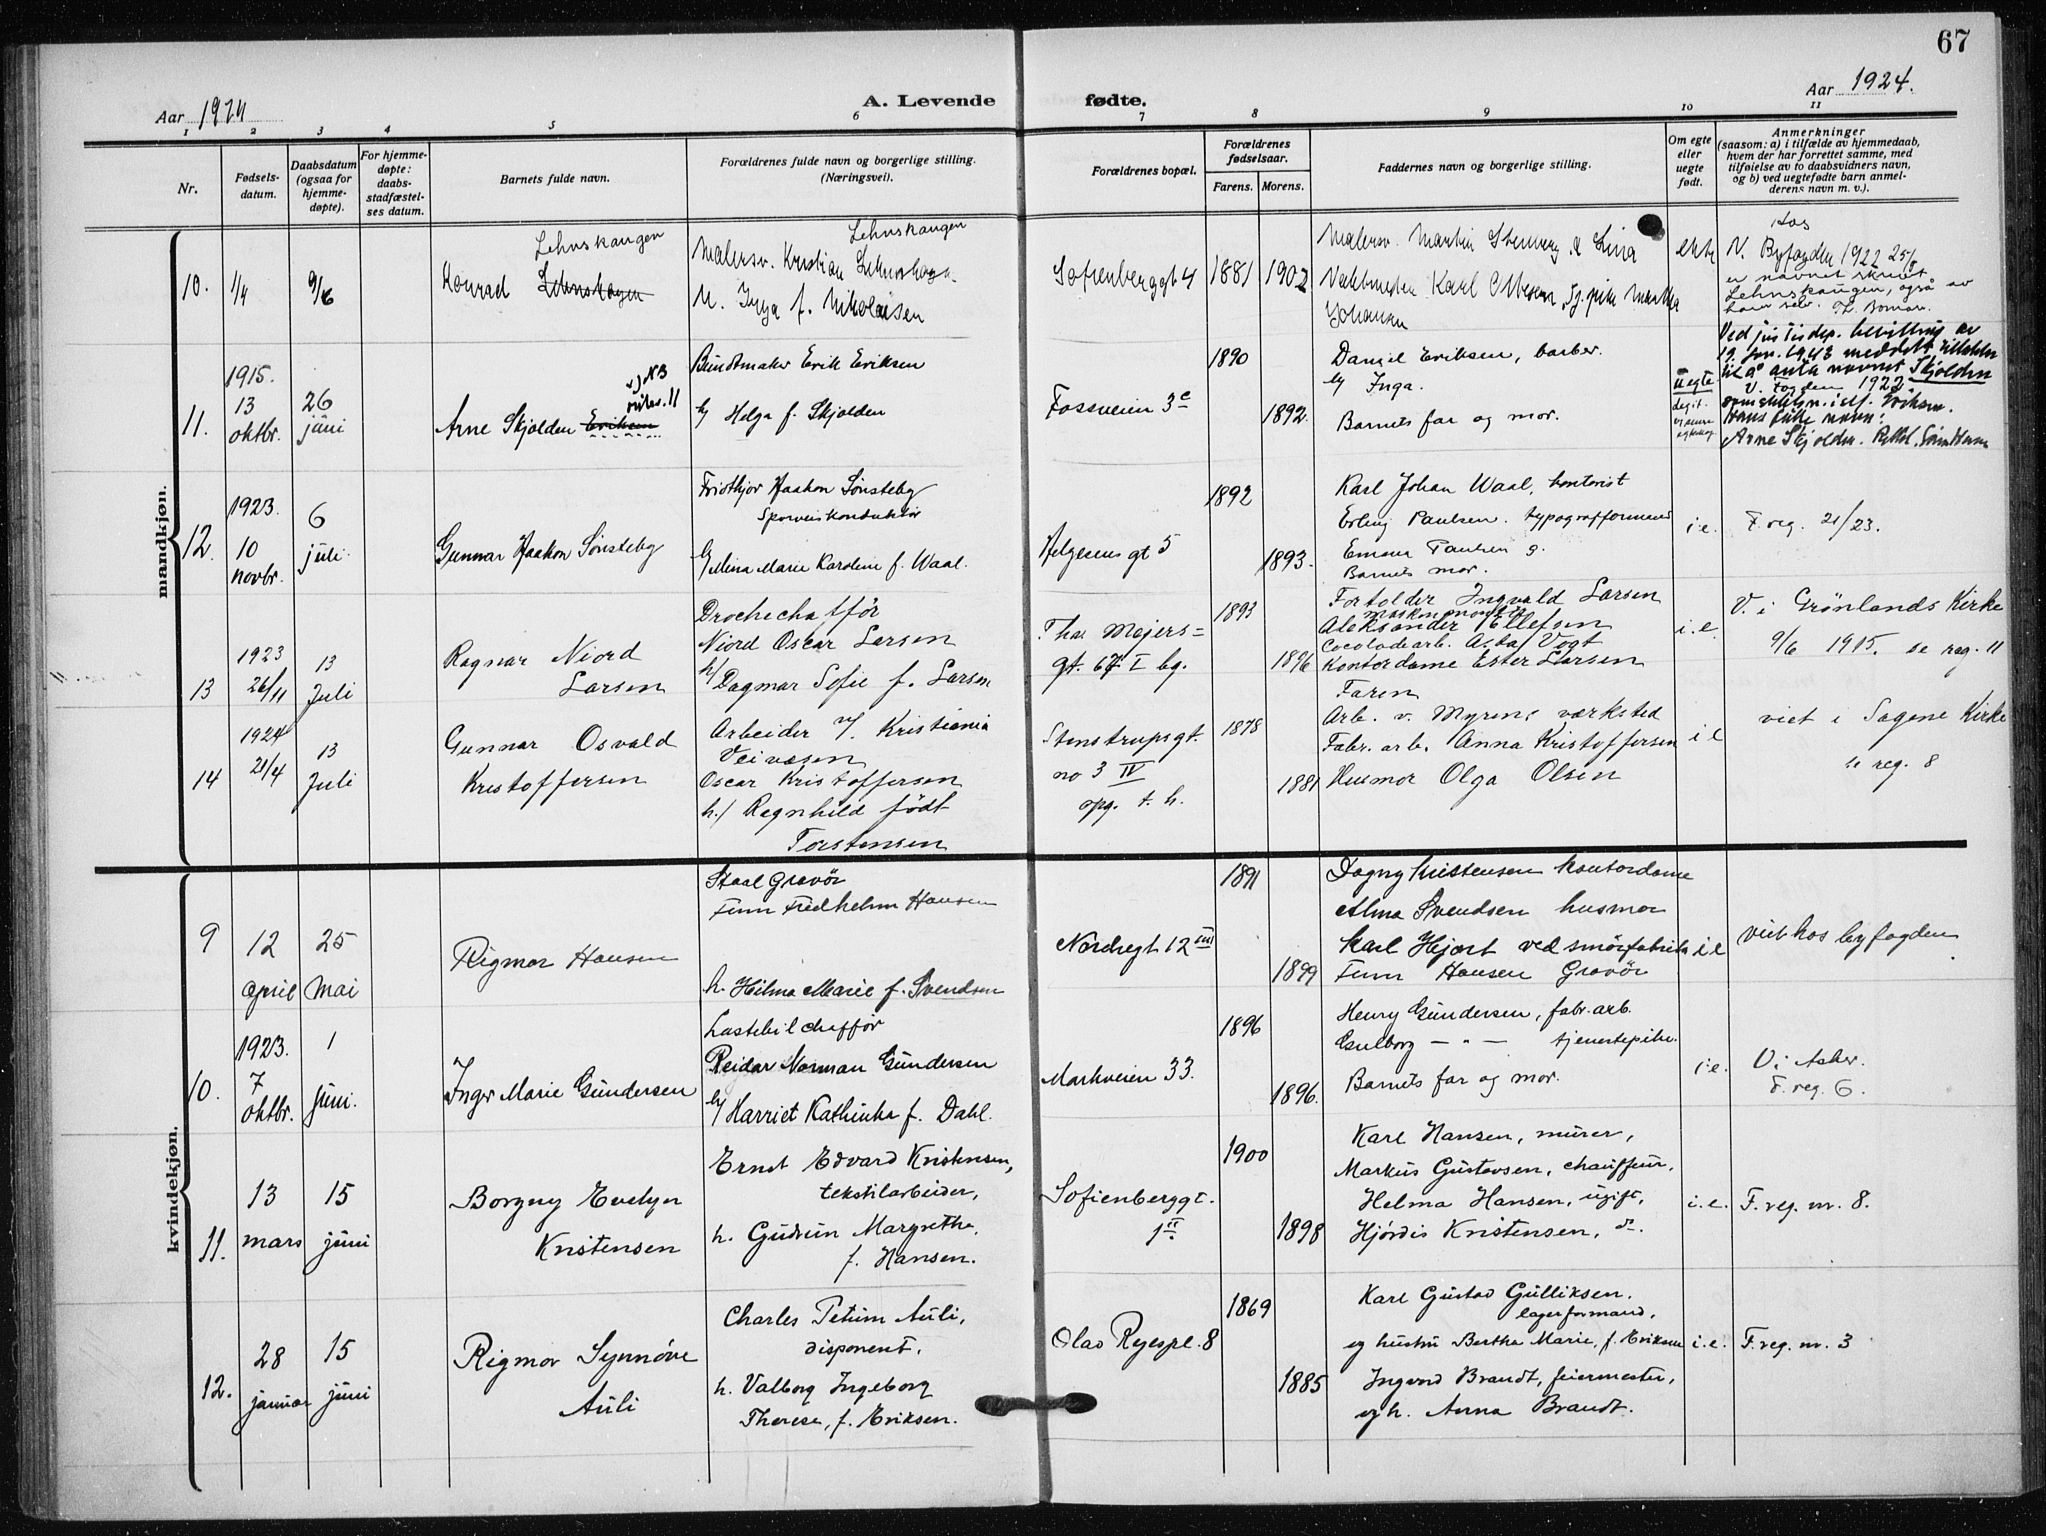 67
Aar 1924
A. Levende
fødte.
Aar 1924.
1 2 3 4 5 6 7 8 9 10 11
Nr.
Fødsels-
datum.
Daabsdatum
(ogsaa for
hjemme-
døpte).
For hjemme-
døpte:
daabs-
stadfæstel-
ses datum.
Barnets fulde navn.
Forældrenes fulde navn og borgerlige stilling.
(Næringsvei).
Forældrenes bopæl.
Forældrenes
fødselsaar.
Farens. Morens.
Faddernes navn og borgerlige stilling.
Om egte
eller
uegte
født.
Anmerkninger
(saasom: a) i tilfælde av hjemmedaab,
hvem der har forrettet samme, med
tilføielse av to daabsvidners navn,
og b) ved uegtefødte barn anmel-
derens navn m. v.).
mandkjøn.
10.
1/4
9/6
Lehnskaugen
Konrad Lehnskagen
Lehnskaugen
Malersv. Kristian
H. Inga f. Nikolaisen
Sofienberggt 4
1881
1902
Malersv. Martin Stenberg & Lina
Karl Ottesen,
Johansen
ekte
hos
V. Byfogden 1922 25/5
er navnet skrevet
Lehnskaugen, også av
ham selv.
11.
1915.
13
oktbr.
26
juni
Arne Skjolden Eriksen
NB
Buntmaker Erik Eriksen
h/ Helga f. Skjolden
Fossveien 3c
1890
1892.
Daniel Eriksen, barber.
h/ Inga.
Barnets far og mor.
uegte
Ved justisdep. bevilling av
19. jan. 1943 meddelt tillatelse
til å anta navnet Skjolden
V. Fogden 1922
Arne Skjolden.
12.
1923.
10
novbr.
6
juli
Gunnar Haakon Sønsteby
Fridthjov Haakon Sønsteby
Sporveiskonduktør
h/ Mina Marie Karoline f. Waal.
Helgesens gt 5
1892
1893.
Karl Johan Waal, kontorist
Erling Paulsen. typografformand
Emma Paulsen g.
Barnets mor.
i.e.
F. reg. 21/23.
13
1923
26/11
13
Juli
Ragnar Niord
Larsen
Drochechaffør
Niord Oscar Larsen
h/ Dagmar Sofie f. Larsen
Thor Mejers=
gt. 67 I bg.
1893
1896
Fortolder Ingvald Larsen
Maskinmontør
Aleksander Ellefsen
Cocoladearb. Asta Vogt
Kontordame Ester Larsen
Faren
i.e.
V. i Grønlands Kirke
9/6 1915. se reg. 11
14
1924
21/4
13
Juli
Gunnar Osvald
Kristoffersen
Arbeider v/ Kristiania
Veivæsen
Oscar Kristoffersen
h./ Ragnhild født
Torstensen
Stenstrupsgt.
no 3 IV
opg. t. h.
1878
1881
Arb. v. Myrens værksted
Fabr. arb. Anna Kristoffersen
Husmor Olga Olsen
i e
viet i Sagene Kirke
se reg. 8
kvindekjøn.
9
12
april
25
Mai
Rigmor Hansen
Staal Gravør
Finn Fredhelm Hansen
h. Hilma Marie f. Svendsen
Nordregt 12 III
1891
1899
Dagny Kristensen kontordame
Alma Svendsen husmor
Karl Hjort ved smørfabrik
Finn Hansen Gravør
i e
viet hos byfogden
10.
1923.
7
oktbr.
1
juni.
Inger Marie Gundersen
Lastebilchaffør
Reidar Norman Gundersen
h/ Harriet Kathinka f. Dahl.
Markveien 33.
1896
1896.
Henry Gundersen, fabr. arb.
Gulborg — " — tjenestepike.
Barnets far og mor.
i e.
V. i Asker.
F. reg. 6.
11.
13
mars
15
juni
Borgny Evelyn
Kristensen
Ernst Edvard Kristensen,
tekstilarbeider,
h. Gudrun Margrethe
f. Hansen.
Sofienberggt.
1 II
1900
1898
Karl Hansen, murer,
Markus Gustavsen, chauffeur,
Helma Hansen, ugift,
Hjørdis Kristensen, do.
i. e.
F. reg. nr. 8.
12.
28
januar
15
juni
Rigmor Synnøve
Auli
Charles Petum Auli,
disponent.
h. Valborg Ingeborg
Therese, f. Eriksen.
Olav Ryespl. 8
1869
1885
Karl Gustav Gulliksen.
lagerformand,
og hustru Berthe Marie, f. Eriksen
Ingvard Brandt, feiermester,
og h. Anna Brandt.
i. e.
F. reg. nr. 3